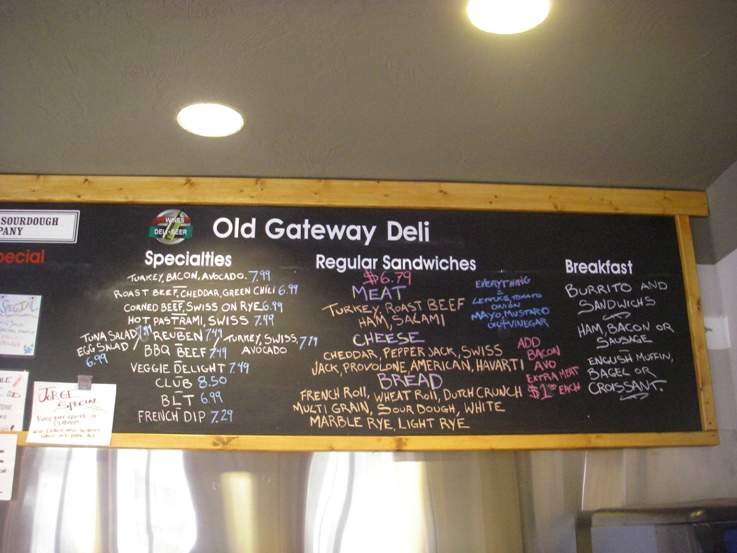 SOURDOUGH
PANY
ecial
SPECIAL
JORGE
SPECIAL
WINES
DELI-BEER
Old Gateway Deli
Specialties
TURKEY, BACON, AVOCADO. 7.99
ROAST BEEF, CHEDDAR, GREEN CHILI 6.99
CORNED BEEF, SWISS ON RYE 6.99
HOT PASTRAMI, SWISS 7.99
TUNA SALAD / REUBEN 7.49 TURKEY, SWISS, AVOCADO
EGG SALAD
6.99
BBQ BEEF 7.49
VEGGIE DELIGHT 7.49
CLUB 8.50
BLT 6.99
FRENCH DIP 7.29
Regular Sandwiches
$6.79
MEAT
TURKEY, ROAST BEEF
HAM, SALAMI
CHEESE
CHEDDAR, PEPPER JACK, SWISS
JACK, PROVOLONE, AMERICAN, HAVARTI
BREAD
FRENCH ROLL, WHEAT ROLL, DUTCH CRUNCH
MULTI GRAIN, SOUR DOUGH, WHITE
MARBLE RYE, LIGHT RYE
EVERYTHING
LETTUCE, TOMATO
ONION
MAYO, MUSTARD
OIL+VINEGAR
ADD
BACON
AVO
EXTRA MEAT
EACH
Breakfast
BURRITO AND
SANDWICHS
HAM, BACON OR
SAUSAGE
ENGLISH MUFFIN,
BAGEL OR
CROISSANT.